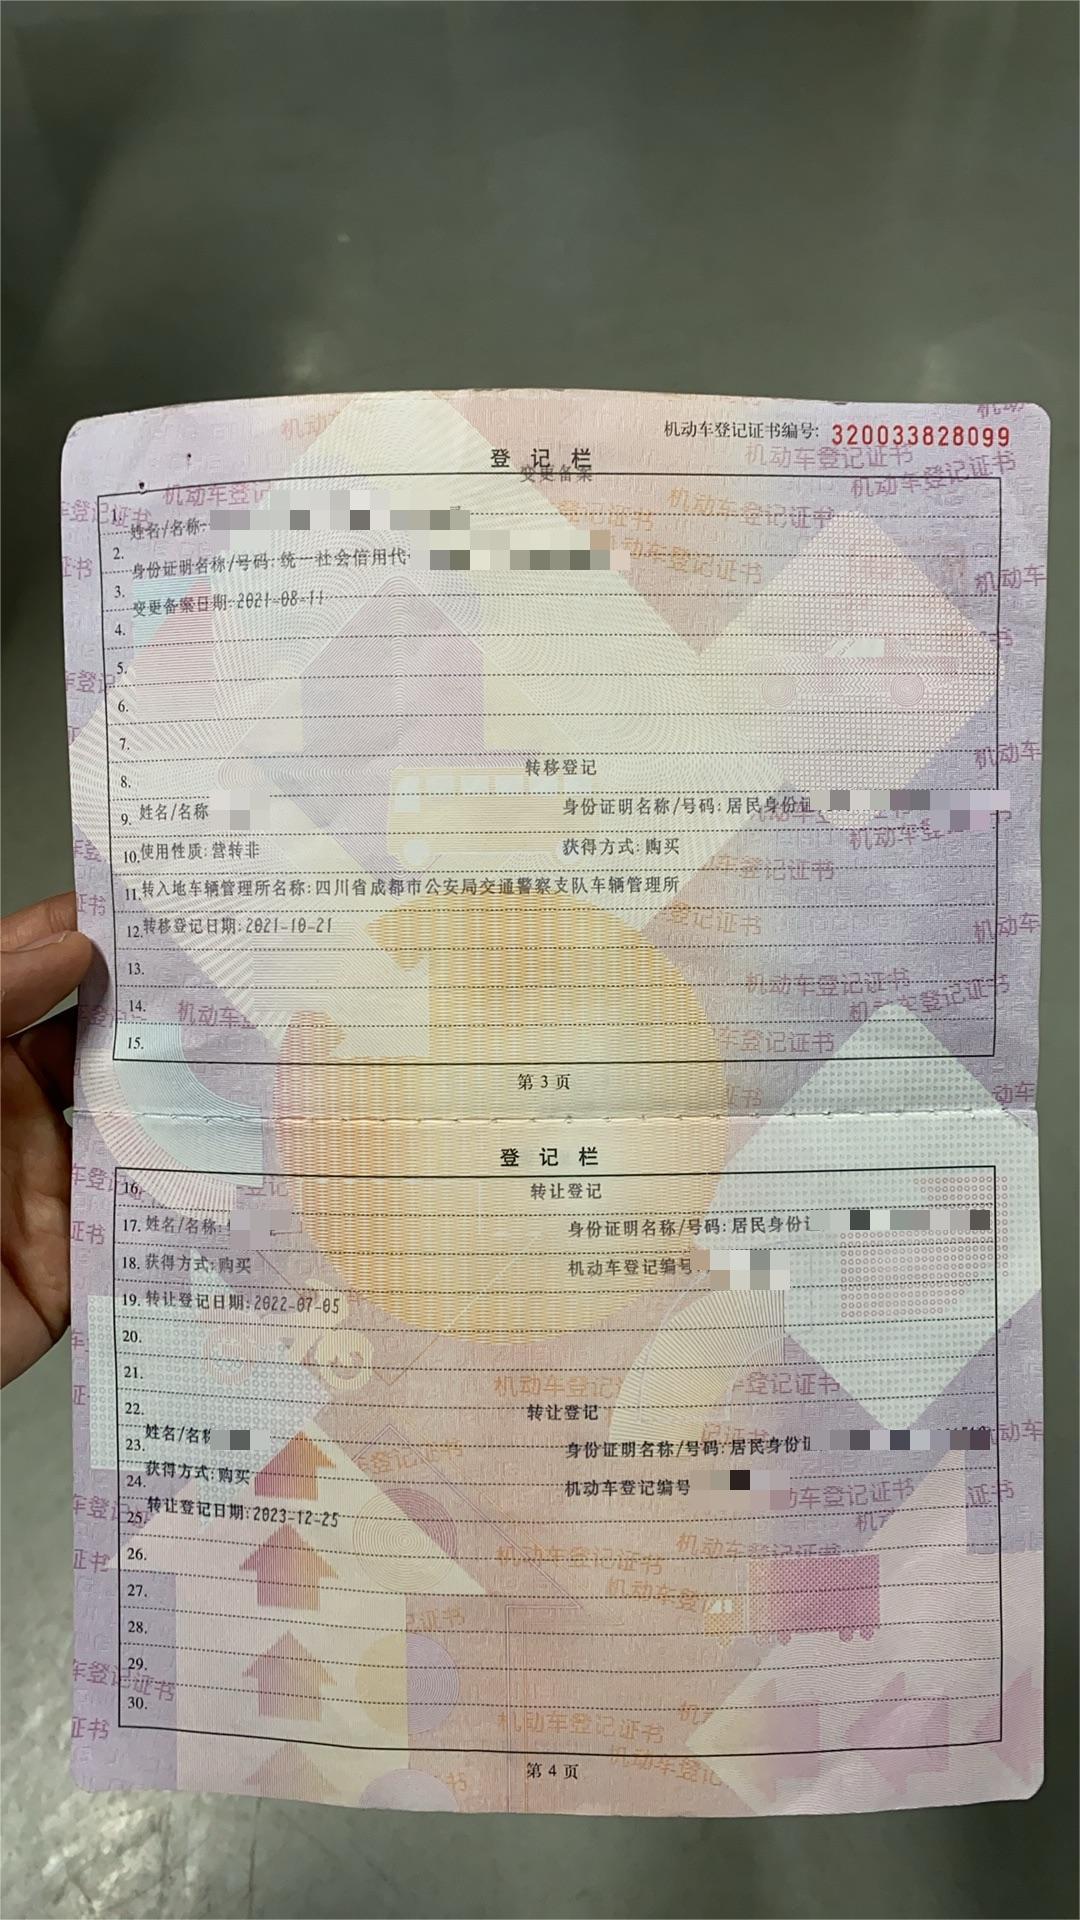 机动车登记证书编号: 320033828099
登 记 栏
变更备案
1. 姓名/名称:
2. 身份证明名称/号码: 统一社会信用代
3. 变更备案日期: 2021-08-11
4.
5.
6.
7.
转移登记
8.
9. 姓名/名称 身份证明名称/号码: 居民身份证
10. 使用性质: 营转非 获得方式: 购买
11. 转入地车辆管理所名称: 四川省成都市公安局交通警察支队车辆管理所
12. 转移登记日期: 2021-10-21
13.
14.
15.
第 3 页
登 记 栏
16. 转让登记
17. 姓名/名称: 身份证明名称/号码: 居民身份证
18. 获得方式: 购买 机动车登记编号:
19. 转让登记日期: 2022-07-05
20.
21.
22. 转让登记
23. 姓名/名称 身份证明名称/号码: 居民身份证
24. 获得方式: 购买 机动车登记编号
25. 转让登记日期: 2023-12-25
26.
27.
28.
29.
30.
第 4 页